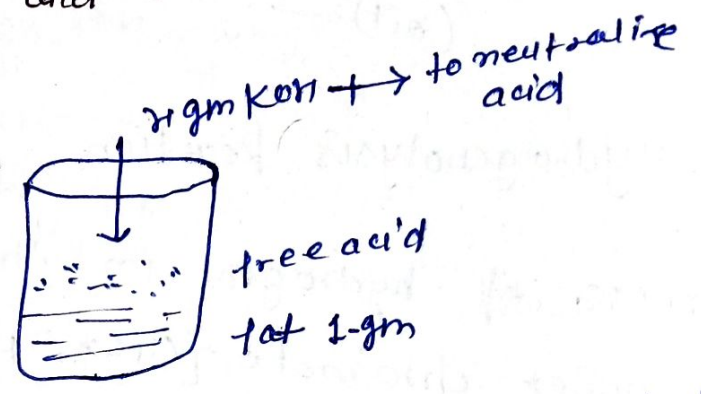 x gm KOH → to neutralize
acid
free acid
fat 1-gm